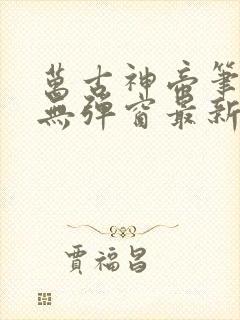 萬古神帝筆
無彈窗最新
賈福昌